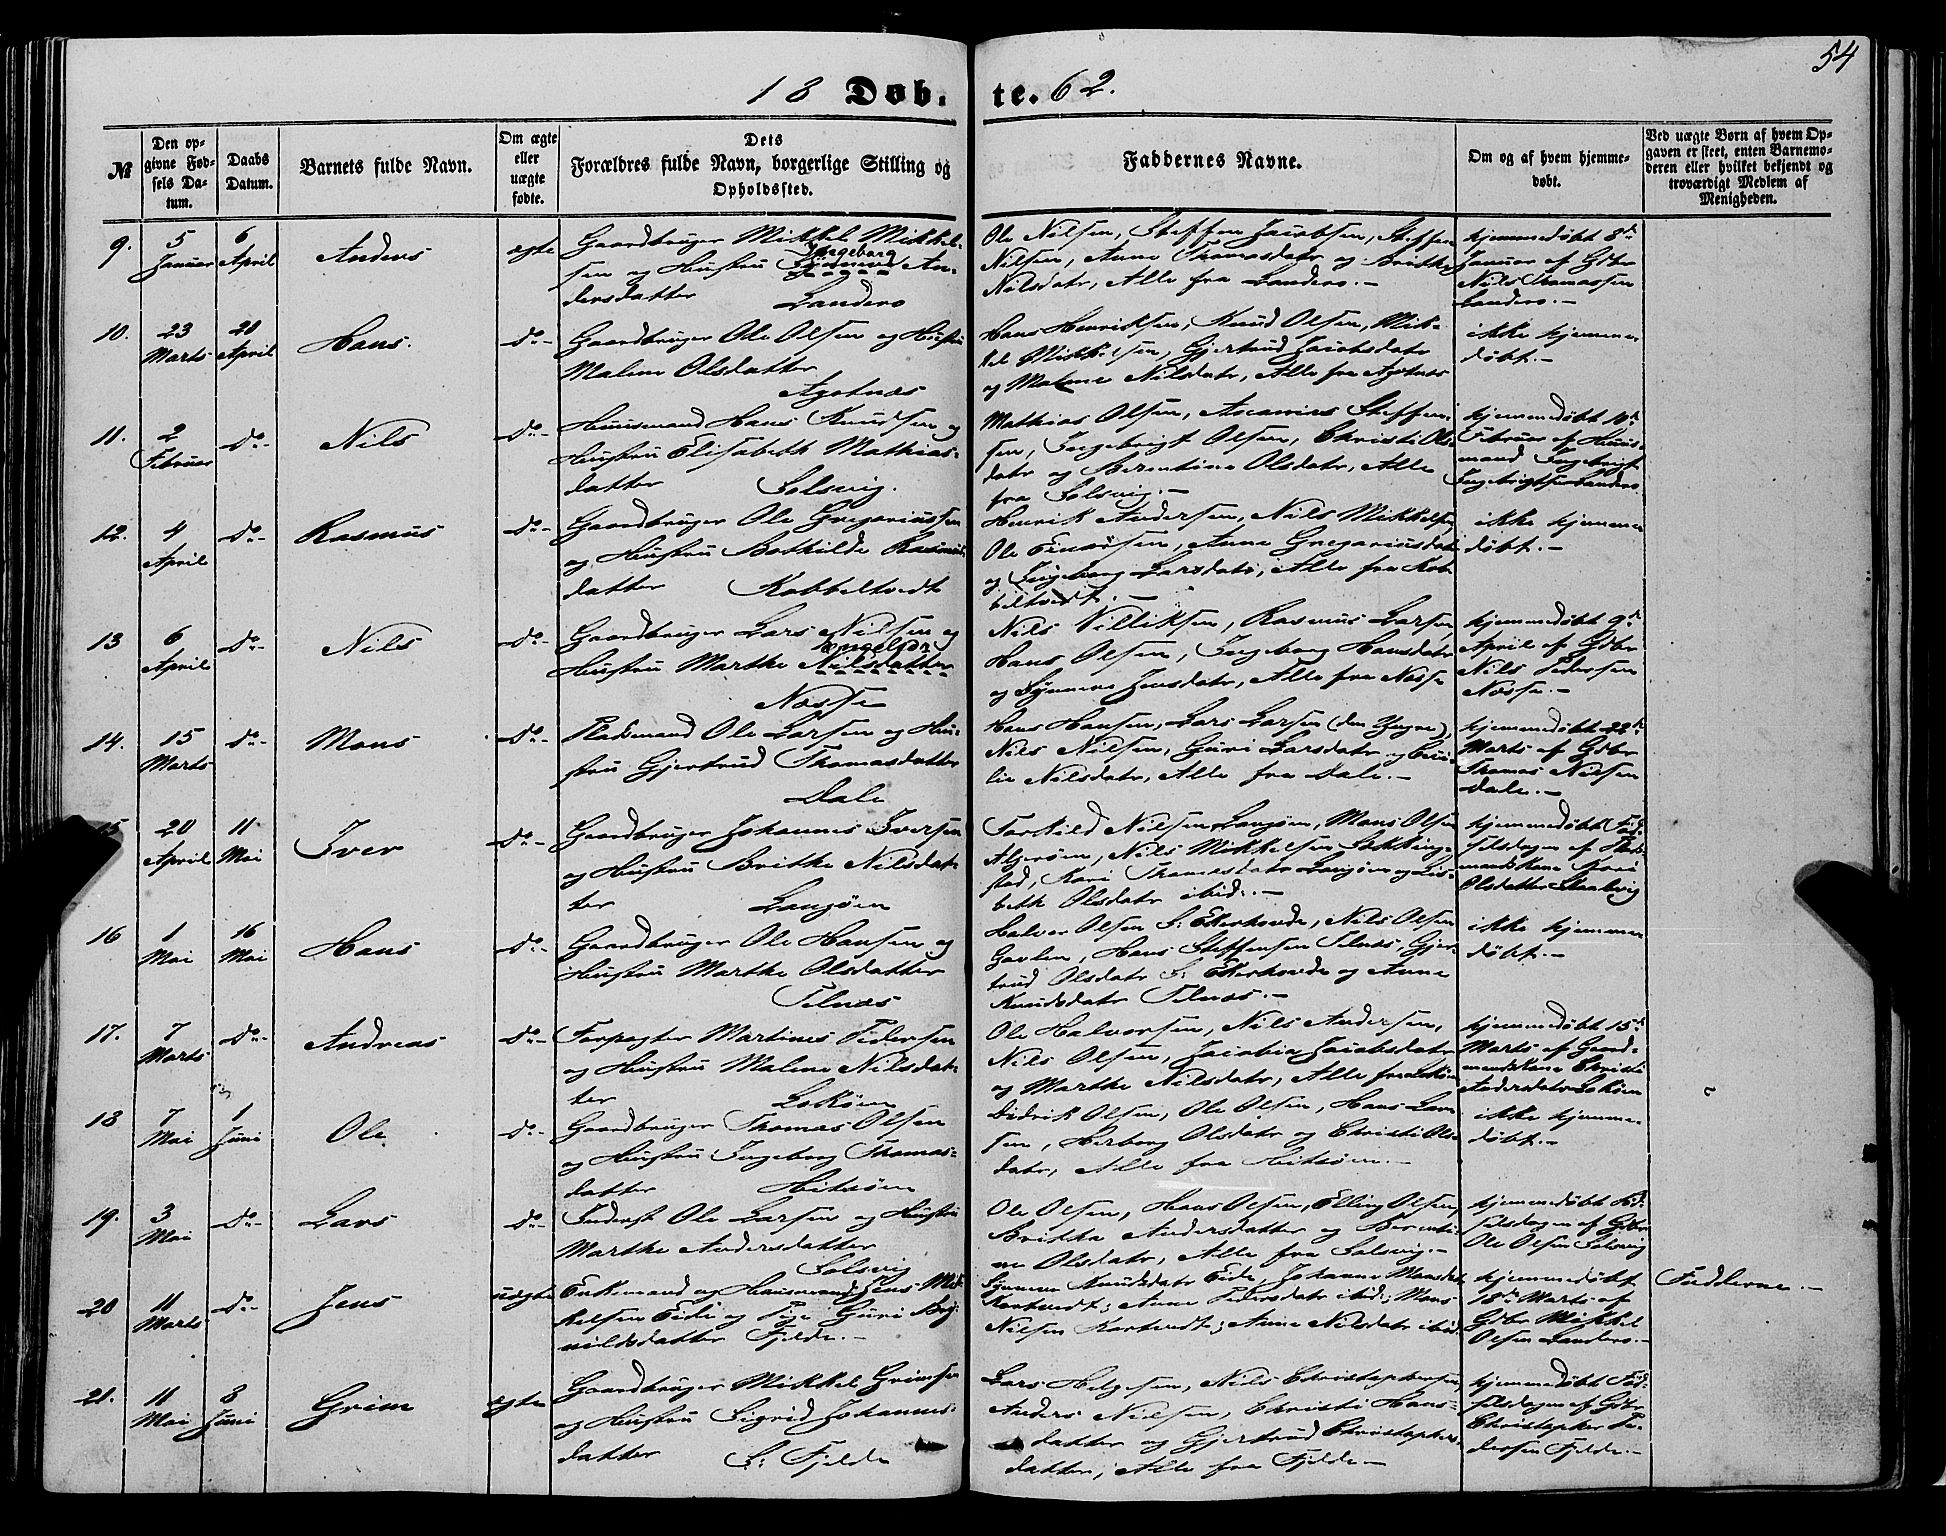 54
18 Døb. te. 62.
№
Den opgivne Fødsels Datum.
Daabs Datum.
Barnets fulde Navn.
Om ægte eller uægte fødte.
Dets Forældres fulde Navn, borgerlige Stilling og Opholdssted.
Faddernes Navne.
Om og af hvem hjemmedøbt.
Ved uægte Børn af hvem Opgaven er skeet, enten Barnemoderen eller hvilket bekjendt og troværdigt Medlem af Menigheden.
9. 5 Januar 6 April Anders ægte
Gaardbruger Mikkel Mikkel-
sen og Hustru Ingeborg An-
dersdatter Landero
Ole Nilsen, Steffen Jacobsen, Steffen
Nilsen, Anne Thomasdatr og Brithe
Nilsdatr, Alle fra Landero.-
hjemmedøbt 8de
Januar af Gdbr
Nils Thomassen
Landero.-
10. 23 Marts 20 April Hans. Do-
Gaardbruger Ole Olsen og Hustru
Malene Olsdatter
Agotnæs
Hans Henriksen, Knud Olsen, Mik-
kel Mikkelsen, Gjertrud Jacobsdatr
og Malene Nilsdatr, Alle fra Agotnæs
ikke hjemme
døbt.-
11. 2 Februar Do- Nils Do-
Huusmand Hans Knudsen og
Hustru Elisabeth Mathias-
datter Solsvig.
Mathias Olsen, Ascanius Steffen-
sen, Ingebrigt Olsen, Christi Ols-
datr og Berentine Olsdatr, Alle
fra Solsvig.-
hjemmedøbt 10de
Februar af Huus-
mand Ingebrigt
Ingebrigtsen Landero
12. 4 April Do- Rasmus Do-
Gaardbruger Ole Gregoriussen
og Hustru Bothilde Rasmus-
datter Kobbeltvedt
Henrik Andersen, Nils Mikkelsen
Ole Einarsen, Anne Gregoriusdatr
og Ingeborg Larsdatr, Alle fra Kob-
beltvedt.-
ikke hjemme
døbt.-
13 6 April Do- Nils Do-
Gaardbruger Lars Nilsen og
Hustru Marthe Nilsdatter
Næsse
Nils Villiksen, Rasmus Larsen,
Hans Olsen, Ingeborg Hansdatr
og Synneve Jensdatr, Alle fra Næsse
hjemmedøbt 9de
April af Gdbr
Nils Pedersen
Næsse.-
14. 15 Marts Do- Mons Do-
Pladsmand Ole Larsen og Hu-
stru Gjertrud Thomasdatter
Dale
Hans Hansen, Lars Larsen (den Yngre),
Nils Nilsen, Guri Larsdatr og
Nilsdatr, Alle fra Dale.-
hjemmedøbt 22de
Marts af Gdbr
Thomas Nilsen
Dale.-
15 20 April 11 Mai Iver Do-
Gaardbruger Johannes Iversen
og Hustru Brithe Nilsdat-
ter Langøen
Torkild Nilsen Langøen, Mons Olsen
Algerøen, Nils Mikkelsen Sekking-
stad, Kari Thomasdatr Langøen og Lis-
beth Olsdatr ibid.-
hjemmedøbt Fød-
selsdagen af
mandskone Kari
Olsdatter Skaalvig
16 1 Mai 16 Mai Hans Do-
Gaardbruger Ole Hansen og
Hustru Marthe Olsdatter
Telnæs
Halvor Olsen S: Ekerhovde, Nils Olsen
Gavlen, Hans Steffensen Telnæs, Gjer-
trud Olsdatr S: Ekerhovde og Anne
Knudsdatr Telnæs.-
ikke hjemme
døbt.-
17. 7 Marts Do- Andreas Do-
Forpagter Martinus Pedersen
og Hustru Malene Nilsdat-
ter Lokøen
Ole Halvorsen, Nils Andersen,
Nils Olsen, Jacobia Jacobsdatr
og Marthe Nilsdatr, Alle fra Lokøen
hjemmedøbt 15de
Marts af Gaard-
mandskone Christi
Andersdatr Lokøen
18 7 Mai 1 Juni Ole Do-
Gaardbruger Thomas Olsen
og Hustru Ingeborg Thomas-
datter Hitsøen
Didrik Olsen, Ole Olsen, Hans Lar-
sen, Herborg Olsdatr og Christi Ols-
datr, Alle fra Hitsøen.-
ikke hjemme-
døbt.-
19. 3 Mai Do- Lars Do-
Inderst Ole Larsen og Hustru
Marthe Andersdatter
Solsvig
Ole Olsen, Hans Olsen, Elling Olsen,
Britha Andersdatter og Berenti-
ne Olsdatr, Alle fra Solsvig.-
hjemmedøbt Fød-
selsdagen af Gdbr
Ole Olsen Solsvig
20 11 Marts Do- Jens uægte
Enkemand og Huusmand Jens Mik-
kelsen Eide og Pige Guri Bry-
nildsdatter Fjelde.-
Synneve Knudsdatr Eide, Johanne Monsdatr
Kortvedt; Anne Pedersdatr ibid; Mons
Nilsen Kortvedt; Anne Nilsdatr ibid
hjemmedøbt
18de Marts af
Gdbr Mikkel
Olsen Landero.-
Fadderne.-
21. 11 Mai 8 Juni Grim ægte
Gaardbruger Mikkel Grimsen
og Hustru Sigrid Johannes-
datter S: Fjelde
Lars Helgesen, Nils Christophersen,
Anders Nilsen, Christi Hans-
datter og Gjertrud Christophers-
datter, Alle fra Fjelde.-
hjemmedøbt Fød-
selsdagen af Gdbr
Christopher Pe-
dersen Fjelde.-